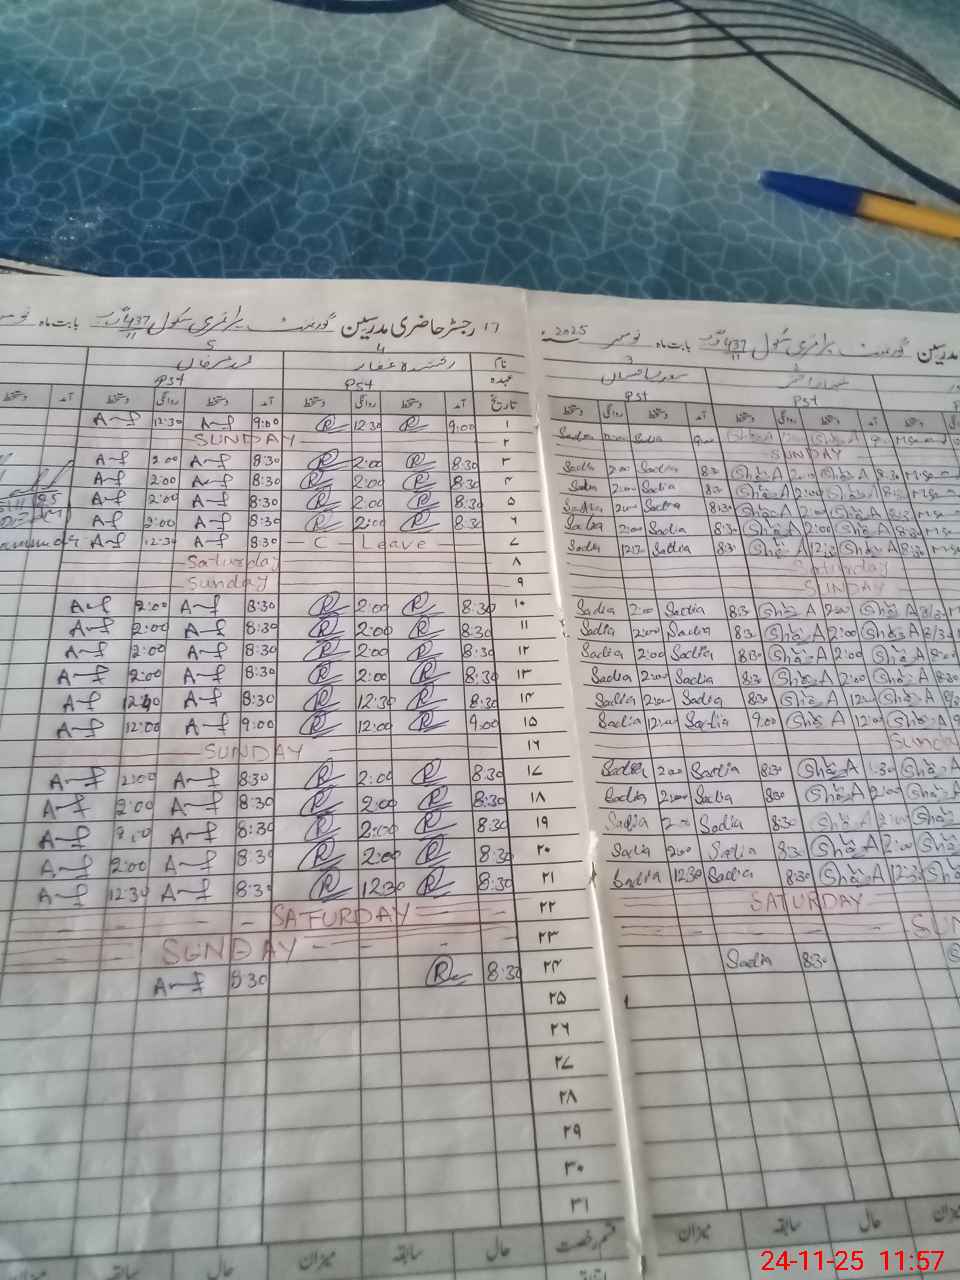 ۱۷ رجسٹر حاضری مدرسین گورنمنٹ پرائمری سکول 437 بابت ماہ
نام
عہدہ PST PST
تاریخ آمد دستخط روانگی دستخط آمد دستخط روانگی دستخط آمد دستخط
۱ 9:00 R 12:30 R 9:00 A-f 12:30 A-f
۲ SUNDAY
۳ 8:30 R 2:00 R 8:30 A-f 2:00 A-f
۴ 8:30 R 2:00 R 8:30 A-f 2:00 A-f
۵ 8:30 R 2:00 R 8:30 A-f 2:00 A-f
۶ 8:30 R 2:00 R 8:30 A-f 2:00 A-f
۷ C - Leave 8:30 A-f 12:30 A-f
۸ Saturday
۹ Sunday
۱۰ 8:30 R 2:00 R 8:30 A-f 2:00 A-f
۱۱ 8:30 R 2:00 R 8:30 A-f 2:00 A-f
۱۲ 8:30 R 2:00 R 8:30 A-f 2:00 A-f
۱۳ 8:30 R 2:00 R 8:30 A-f 2:00 A-f
۱۴ 8:30 R 12:30 R 8:30 A-f A-f
۱۵ 9:00 R 12:00 R 9:00 A-f 12:00 A-f
۱۶ SUNDAY
۱۷ 8:30 R 2:00 R 8:30 A-f 2:00 A-f
۱۸ 8:30 R 2:00 R 8:30 A-f 2:00 A-f
۱۹ 8:30 R 2:00 R 8:30 A-f A-f
۲۰ 8:30 R 2:00 R 8:30 A-f 2:00 A-f
۲۱ 8:30 R 12:30 R 8:30 A-f 12:30 A-f
۲۲ SATURDAY
۲۳ SUNDAY
۲۴ 8:30 R 8:30 A-f
۲۵
۲۶
۲۷
۲۸
۲۹
۳۰
۳۱
قسم رخصت حال سابقہ میزان حال سابقہ میزان
مدرسین گورنمنٹ پرائمری سکول 437 بابت ماہ نومبر 2025
3
PST PST
دستخط آمد دستخط روانگی دستخط آمد دستخط روانگی دستخط
Sha A Sha A 9:00 Sadia Sadia
SUNDAY
Sha A Sha A 8:30 Sadia 2:00 Sadia
Sha A 2:00 Sha A 8:30 Sadia 2:00 Sadia
Sha A 2:00 Sha A 8:30 Sadia 2:00 Sadia
Sha A 2:00 Sha A 8:30 Sadia 2:00 Sadia
Sha A 12:30 Sha A 8:30 Sadia 12:30 Sadia
Saturday
SUNDAY
Sha A 2:00 Sha A 8:30 Sadia 2:00 Sadia
Sha A 2:00 Sha A 8:30 Sadia 2:00 Sadia
Sha A 2:00 Sha A 8:30 Sadia 2:00 Sadia
Sha A 2:00 Sha A 8:30 Sadia 2:00 Sadia
Sha A Sha A 8:30 Sadia Sadia
Sha A 12:00 Sha A 9:00 Sadia 12:00 Sadia
Sunday
Sha A Sha A 8:30 Sadia 2:00 Sadia
Sha A 2:00 Sha A 8:30 Sadia 2:00 Sadia
Sha A 2:00 Sha A 8:30 Sadia 2:00 Sadia
Sha A 2:00 Sha A 8:30 Sadia 2:00 Sadia
Sha A 12:30 Sha A 8:30 Sadia 12:30 Sadia
SATURDAY
SUN
8:30 Sadia
میزان حال سابقہ میزان
24-11-25 11:57